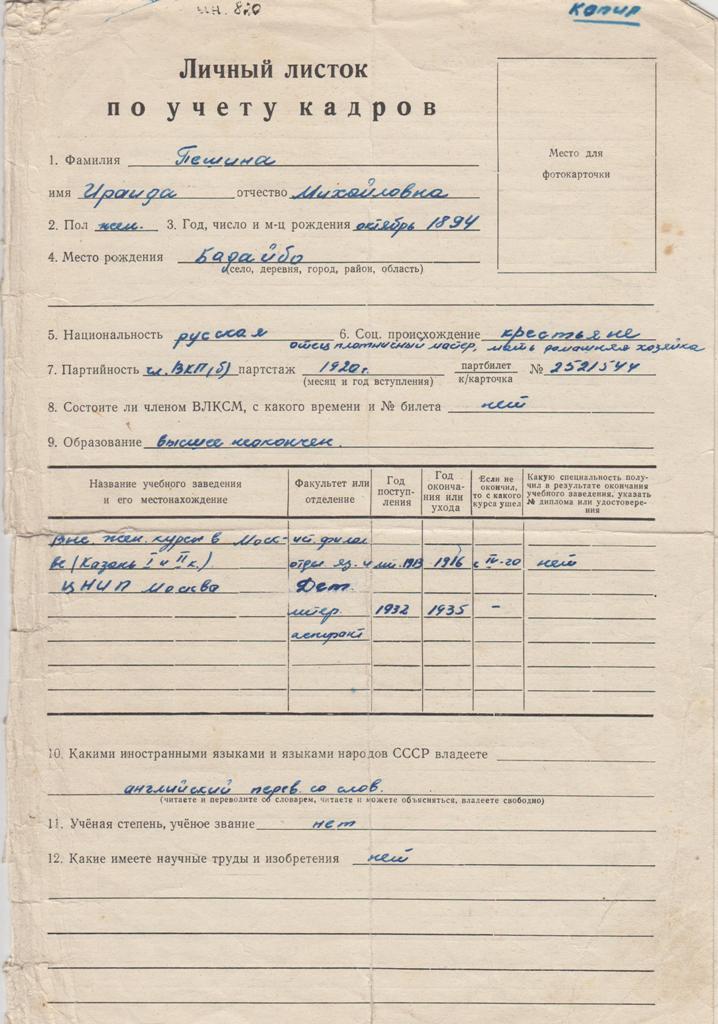 ин. 820
копия
Личный листок
по учету кадров
Место для
фотокарточки
1. Фамилия Пешина
имя Ираида отчество Михайловна
2. Пол жен. 3. Год, число и м-ц рождения октябрь 1894
4. Место рождения Бадайбо
(село, деревня, город, район, область)
5. Национальность русская 6. Соц. происхождение крестьяне
отец плотничный мастер, мать домашняя хозяйка
7. Партийность чл. ВКП(б) партстаж 1920г. партбилет № 2521544
(месяц и год вступления) к/карточка
8. Состоите ли членом ВЛКСМ, с какого времени и № билета нет
9. Образование высшее неокончен.
Название учебного заведения и его местонахождение
Факультет или отделение
Год поступ-ления
Год оконча-ния или ухода
Если не окончил, то с какого курса ушел
Какую специальность полу-чил в результате окончания учебного заведения, указать № диплома или удостовере-ния
Выс. жен. курсы в Моск- ист. филол
ве (Казань I и II к.) отдел яз. и лит. 1913 1916 с IV-го нет
ЦНИП Москва Дет.
литер. 1932 1935 –
аспирант
10. Какими иностранными языками и языками народов СССР владеете
английский перев. со слов.
(читаете и переводите со словарем, читаете и можете объясняться, владеете свободно)
11. Учёная степень, учёное звание нет
12. Какие имеете научные труды и изобретения нет